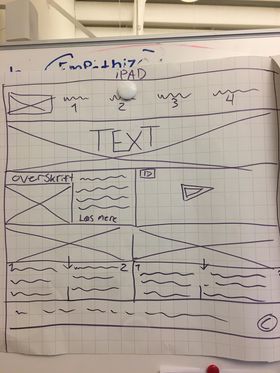 Empathize
iPAD
1 2 3 4
TEXT
overskrift
Læs mere
1 2 1
C